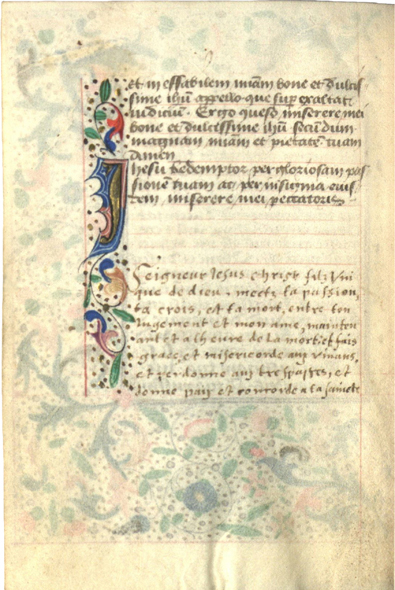 et in effabilem miam bone et dulcis-
sime ihu appello que sup exaltat
iudiciu. Ergo queso miserere mei
bone et dulcissime ihu secundum
magnam miam et pietate tuam
Amen
Ihesu Redemptor per gloriosam pas
sione tuam ac per insignia eius
dem miserere mei peccatoris
Seigneur Jesus christ filz Uni
que de dieu, mectz ta passion,
ta crois, et ta mort, entre ton
iugement et mon ame, mainten
ant et a lheure de la mort et fais
grace et misericorde aux vivans,
et perdonne aux trespasses, et
donne paix et concorde a ta saincte